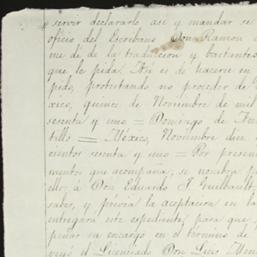 servir declararlo asi y mandar se
oficio del Escribano Don Ramon
me dé de la traduccion y bastantes
que le pida. Asi es de hacerse en
pido, protestando no proceder de
xico, quince de Noviembre de mil
sesenta y uno = Domingo de
tillo = México, Noviembre diez
cientos sesenta y uno = Por presen
mentos que acompaña; se nombra
ellos á Don Eduardo F. Guilbault
saber, y prévia la aceptacion en la
entregará este espediente, para que
peñar su encargo en el término de
veyó el Licenciado Don Luis